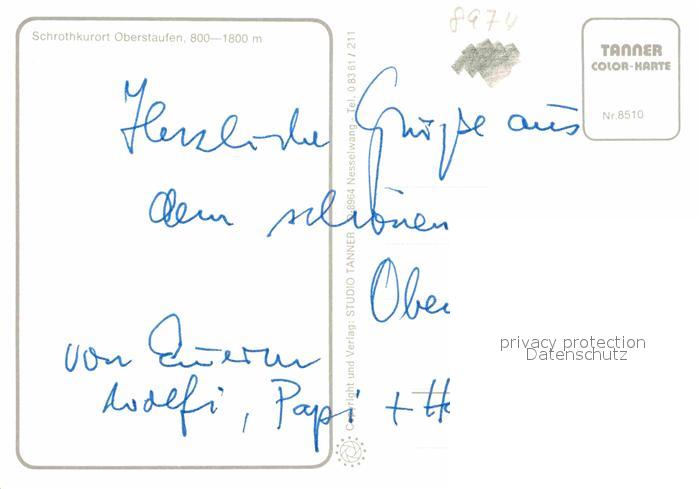 Schrothkurort Oberstaufen, 800—1800 m
8974
TANNER
COLOR-KARTE
Nr. 8510
Herzliche Grüße aus
dem schönen
Ober
von Euerm
Adolfi, Papi + H
Copyright und Verlag: STUDIO TANNER 8964 Nesselwang - Tel. 08361/211
privacy protection
Datenschutz